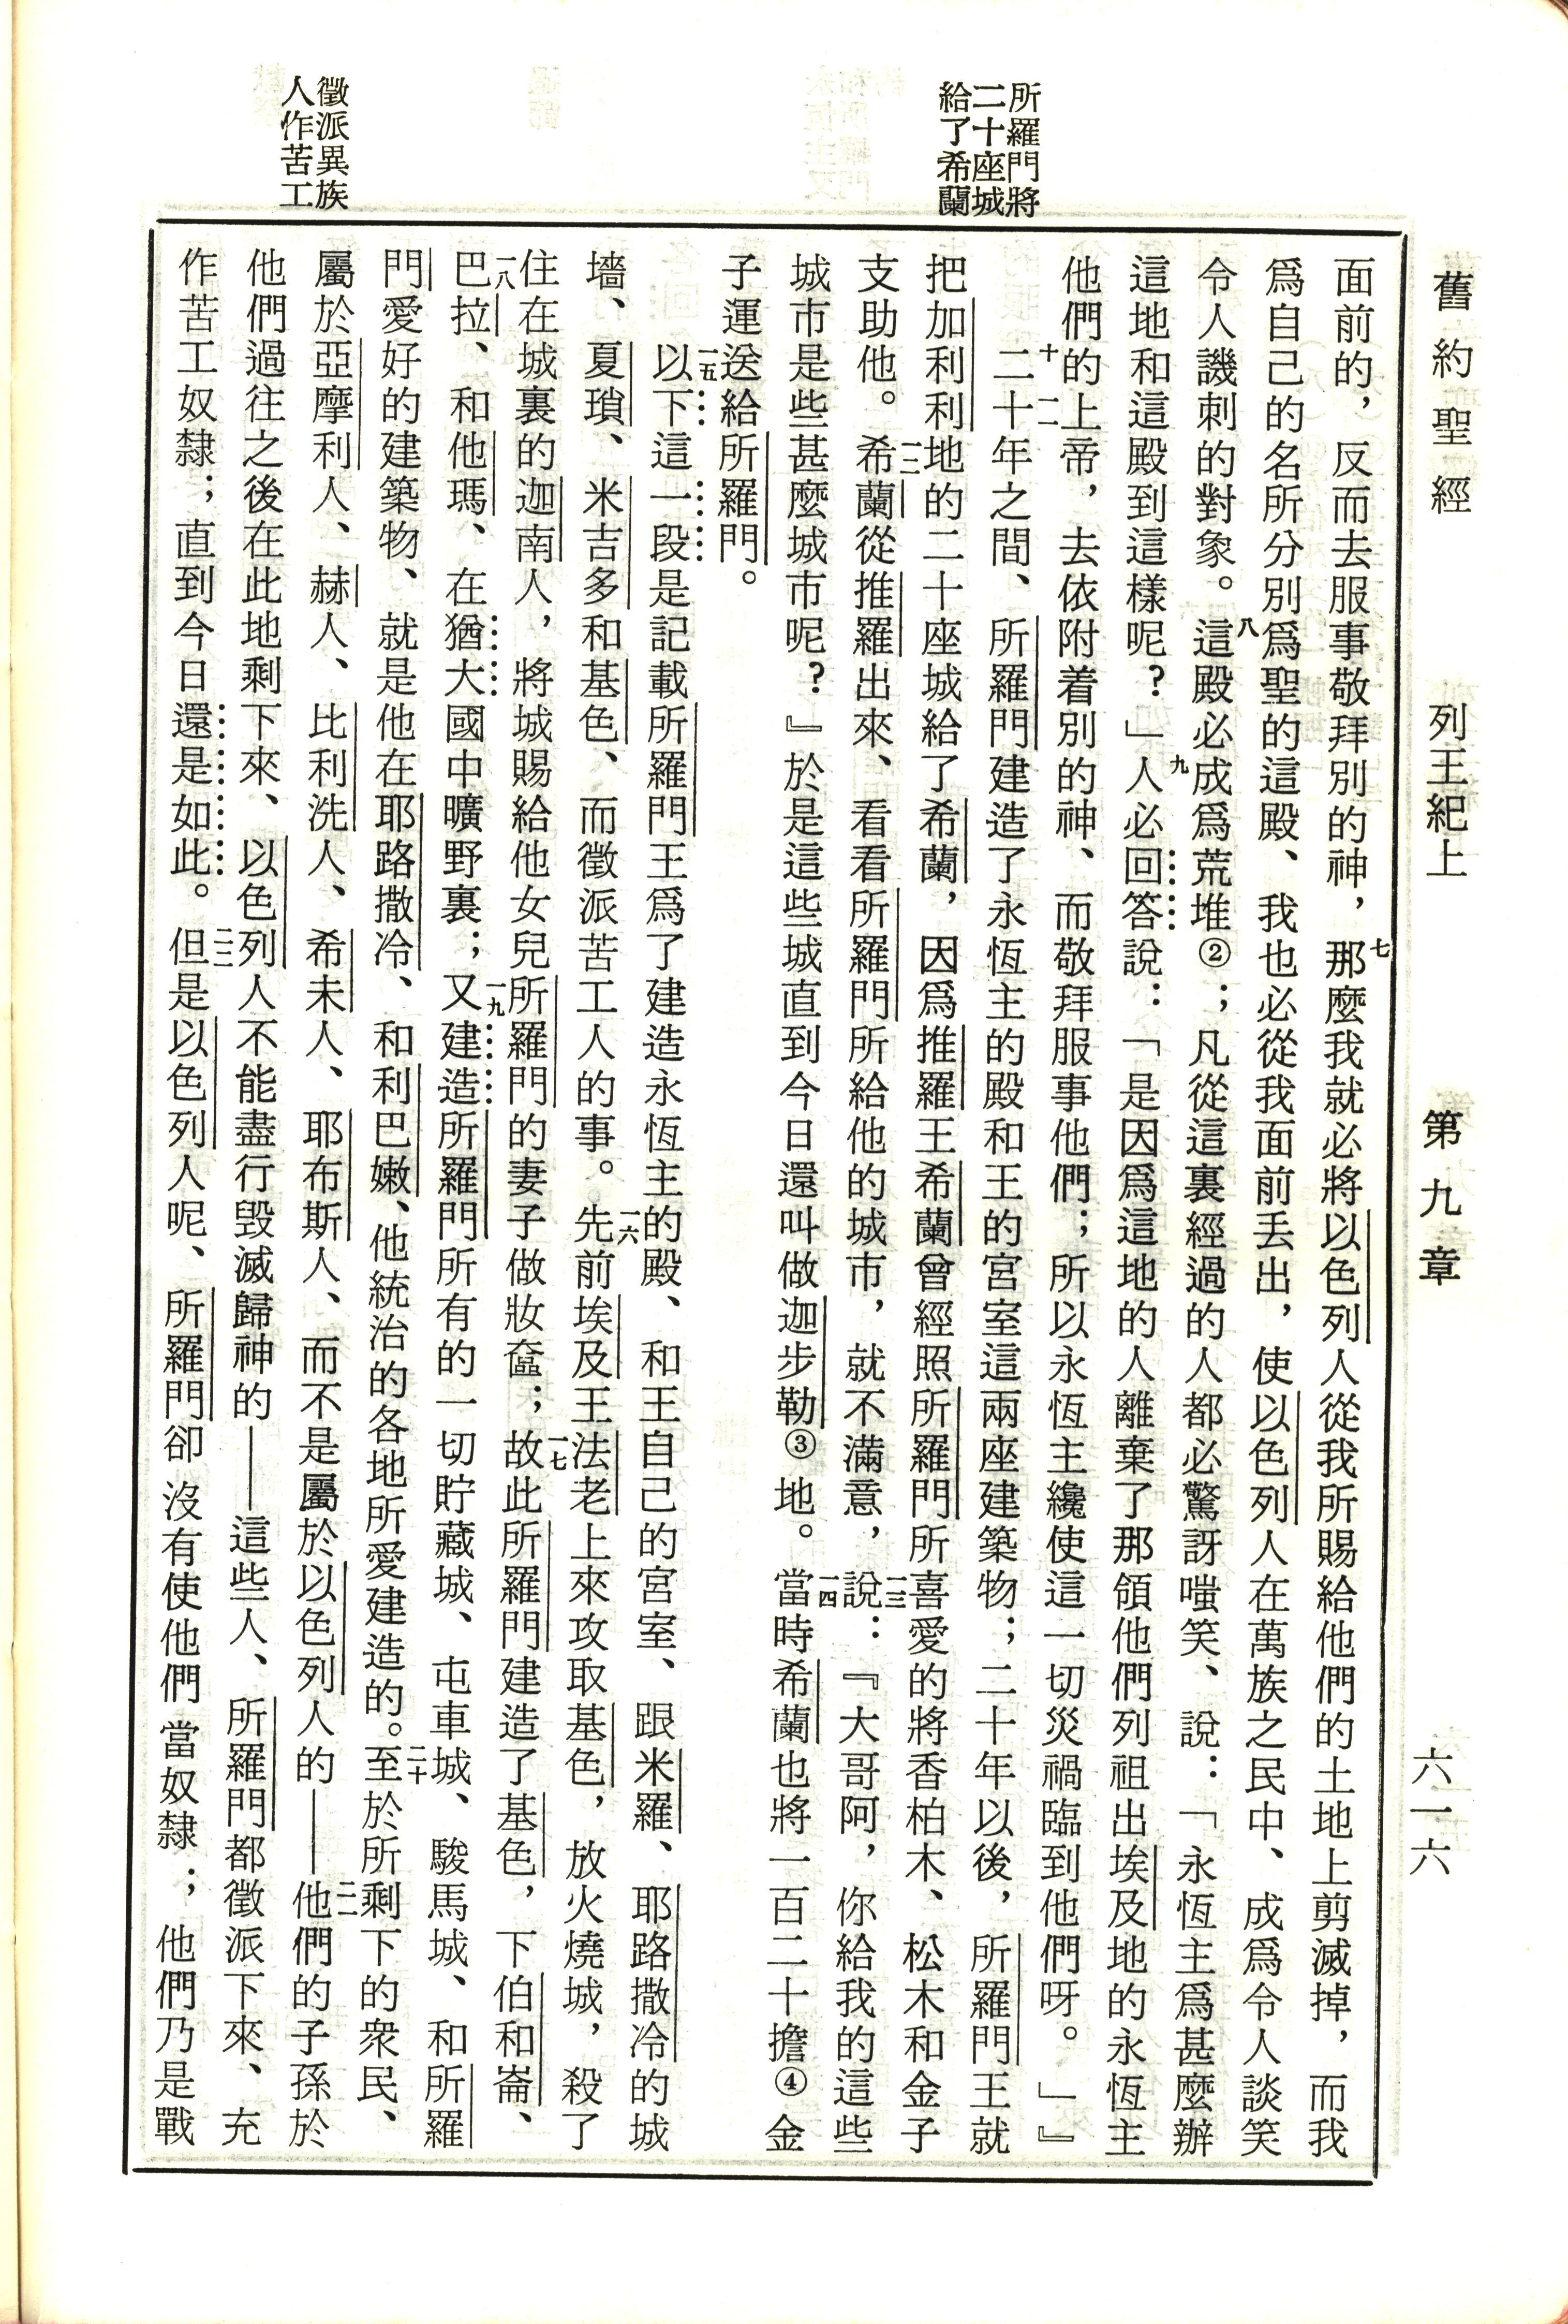 舊約聖經　列王紀上　第九章　六一六
所羅門將
二十座城
給了希蘭
徵派異族
人作苦工
面前的，反而去服事敬拜別的神，七那麼我就必將以色列人從我所賜給他們的土地上剪滅掉，而我
爲自己的名所分別爲聖的這殿、我也必從我面前丟出，使以色列人在萬族之民中、成爲令人談笑
令人譏刺的對象。八這殿必成爲荒堆②；凡從這裏經過的人都必驚訝嗤笑、說：「永恆主爲甚麼辦
這地和這殿到這樣呢？」九人必回答說：「是因爲這地的人離棄了那領他們列祖出埃及地的永恆主
他們的上帝，去依附着別的神、而敬拜服事他們；所以永恆主纔使這一切災禍臨到他們呀。」』
十二十年之間、所羅門建造了永恆主的殿和王的宮室這兩座建築物；二十年以後，所羅門王就
把加利利地的二十座城給了希蘭，因爲推羅王希蘭曾經照所羅門所喜愛的將香柏木、松木和金子
支助他。一二希蘭從推羅出來、看看所羅門所給他的城市，就不滿意，一三說：『大哥阿，你給我的這些
城市是些甚麼城市呢？』於是這些城直到今日還叫做迦步勒③地。一四當時希蘭也將一百二十擔④金
子運送給所羅門。
一五以下這一段是記載所羅門王爲了建造永恆主的殿、和王自己的宮室、跟米羅、耶路撒冷的城
墻、夏瑣、米吉多和基色、而徵派苦工人的事。一六先前埃及王法老上來攻取基色，放火燒城，殺了
住在城裏的迦南人，將城賜給他女兒所羅門的妻子做妝奩；一七故此所羅門建造了基色，下伯和崙、
一八巴拉、和他瑪、在猶大國中曠野裏；一九又建造所羅門所有的一切貯藏城、屯車城、駿馬城、和所羅
門愛好的建築物、就是他在耶路撒冷、和利巴嫩、他統治的各地所愛建造的。二十至於所剩下的衆民、
屬於亞摩利人、赫人、比利洗人、希未人、耶布斯人、而不是屬於以色列人的——二一他們的子孫於
他們過往之後在此地剩下來、以色列人不能盡行毀滅歸神的——這些人、所羅門都徵派下來、充
作苦工奴隸；直到今日還是如此。二二但是以色列人呢、所羅門卻沒有使他們當奴隸；他們乃是戰